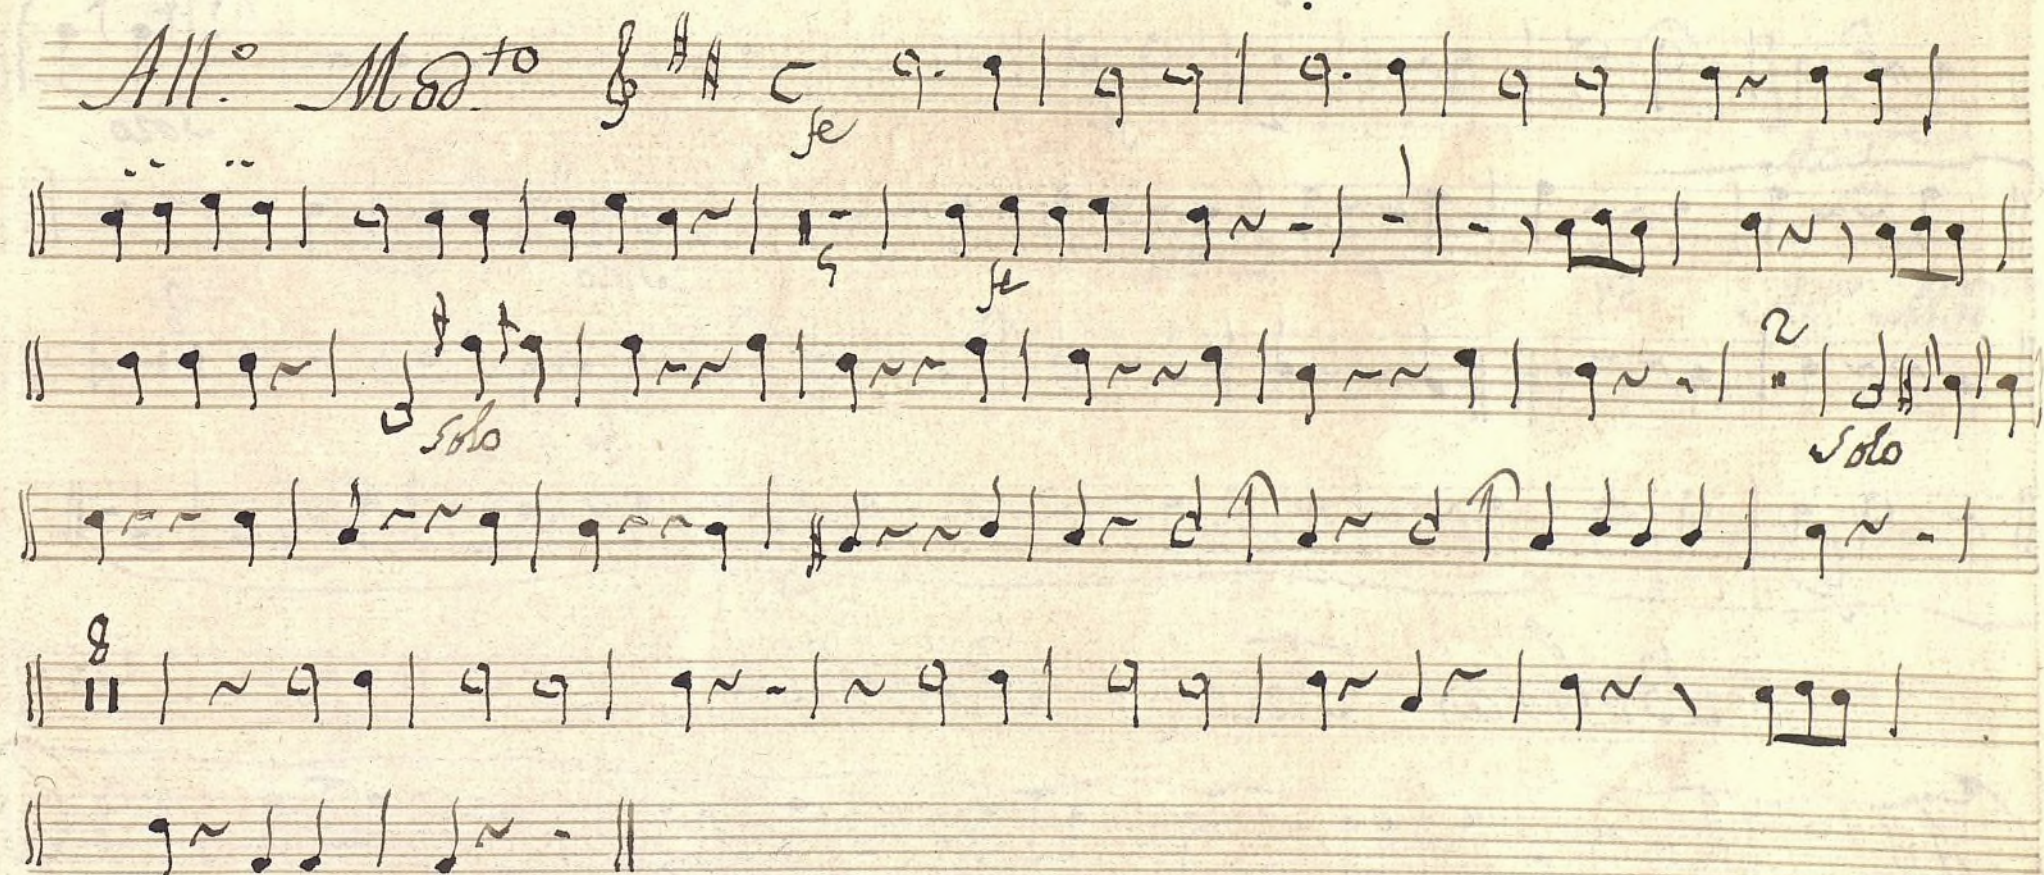 All.º Mod.to
fe
1
5
fe
2
solo
solo
8